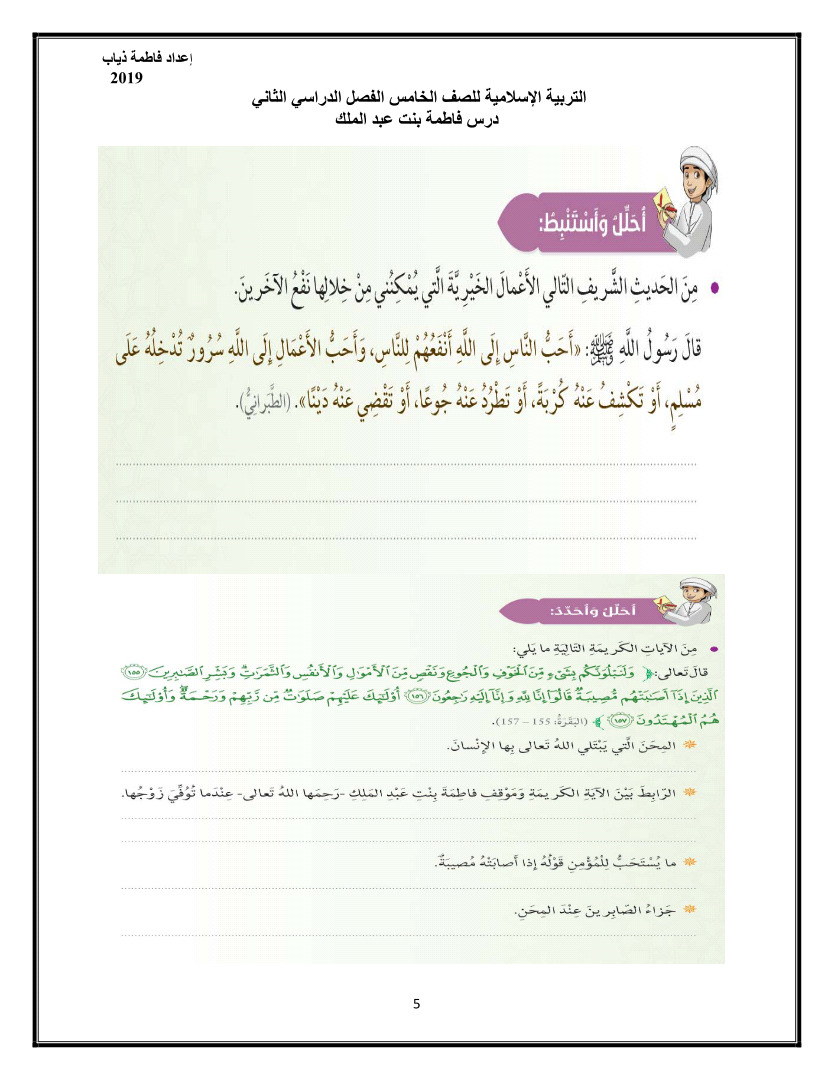 إعداد فاطمة ذياب
2019
التربية الإسلامية للصف الخامس الفصل الدراسي الثاني
درس فاطمة بنت عبد الملك
أُحَلِّلُ وَأَسْتَنْبِطُ:
• مِنَ الحَديثِ الشَّريفِ التّالي الأَعْمالَ الخَيْرِيَّةَ الَّتي يُمْكِنُني مِنْ خِلالِها نَفْعُ الآخَرينَ.
قالَ رَسُولُ اللَّهِ ﷺ: «أَحَبُّ النَّاسِ إِلَى اللَّهِ أَنْفَعُهُمْ لِلنَّاسِ، وَأَحَبُّ الأَعْمَالِ إِلَى اللَّهِ سُرُورٌ تُدْخِلُهُ عَلَى
مُسْلِمٍ، أَوْ تَكْشِفُ عَنْهُ كُرْبَةً، أَوْ تَطْرُدُ عَنْهُ جُوعًا، أَوْ تَقْضِي عَنْهُ دَيْنًا». (الطَّبَرانِيُّ).
أُحَلِّلُ وَأُحَدِّدُ:
• مِنَ الآياتِ الكَريمَةِ التّالِيَةِ ما يَلي:
قالَ تَعالى: ﴿ وَلَنَبْلُوَنَّكُم بِشَيْءٍ مِّنَ ٱلْخَوْفِ وَٱلْجُوعِ وَنَقْصٍ مِّنَ ٱلْأَمْوَٰلِ وَٱلْأَنفُسِ وَٱلثَّمَرَٰتِ وَبَشِّرِ ٱلصَّٰبِرِينَ ﴿١٥٥﴾
ٱلَّذِينَ إِذَآ أَصَٰبَتْهُم مُّصِيبَةٌ قَالُوٓا۟ إِنَّا لِلَّهِ وَإِنَّآ إِلَيْهِ رَٰجِعُونَ ﴿١٥٦﴾ أُو۟لَٰٓئِكَ عَلَيْهِمْ صَلَوَٰتٌ مِّن رَّبِّهِمْ وَرَحْمَةٌ وَأُو۟لَٰٓئِكَ
هُمُ ٱلْمُهْتَدُونَ ﴿١٥٧﴾ ﴾ (البَقَرَةُ: 155 – 157).
المِحَنَ الَّتي يَبْتَلي اللهُ تَعالى بِها الإِنْسانَ.
الرّابِطَ بَيْنَ الآيَةِ الكَريمَةِ وَمَوْقِفِ فاطِمَةَ بِنْتِ عَبْدِ المَلِكِ -رَحِمَها اللهُ تَعالى- عِنْدَما تُوُفِّيَ زَوْجُها.
ما يُسْتَحَبُّ لِلْمُؤْمِنِ قَوْلُهُ إذا أَصابَتْهُ مُصيبَةٌ.
جَزاءُ الصّابِرينَ عِنْدَ المِحَنِ.
5